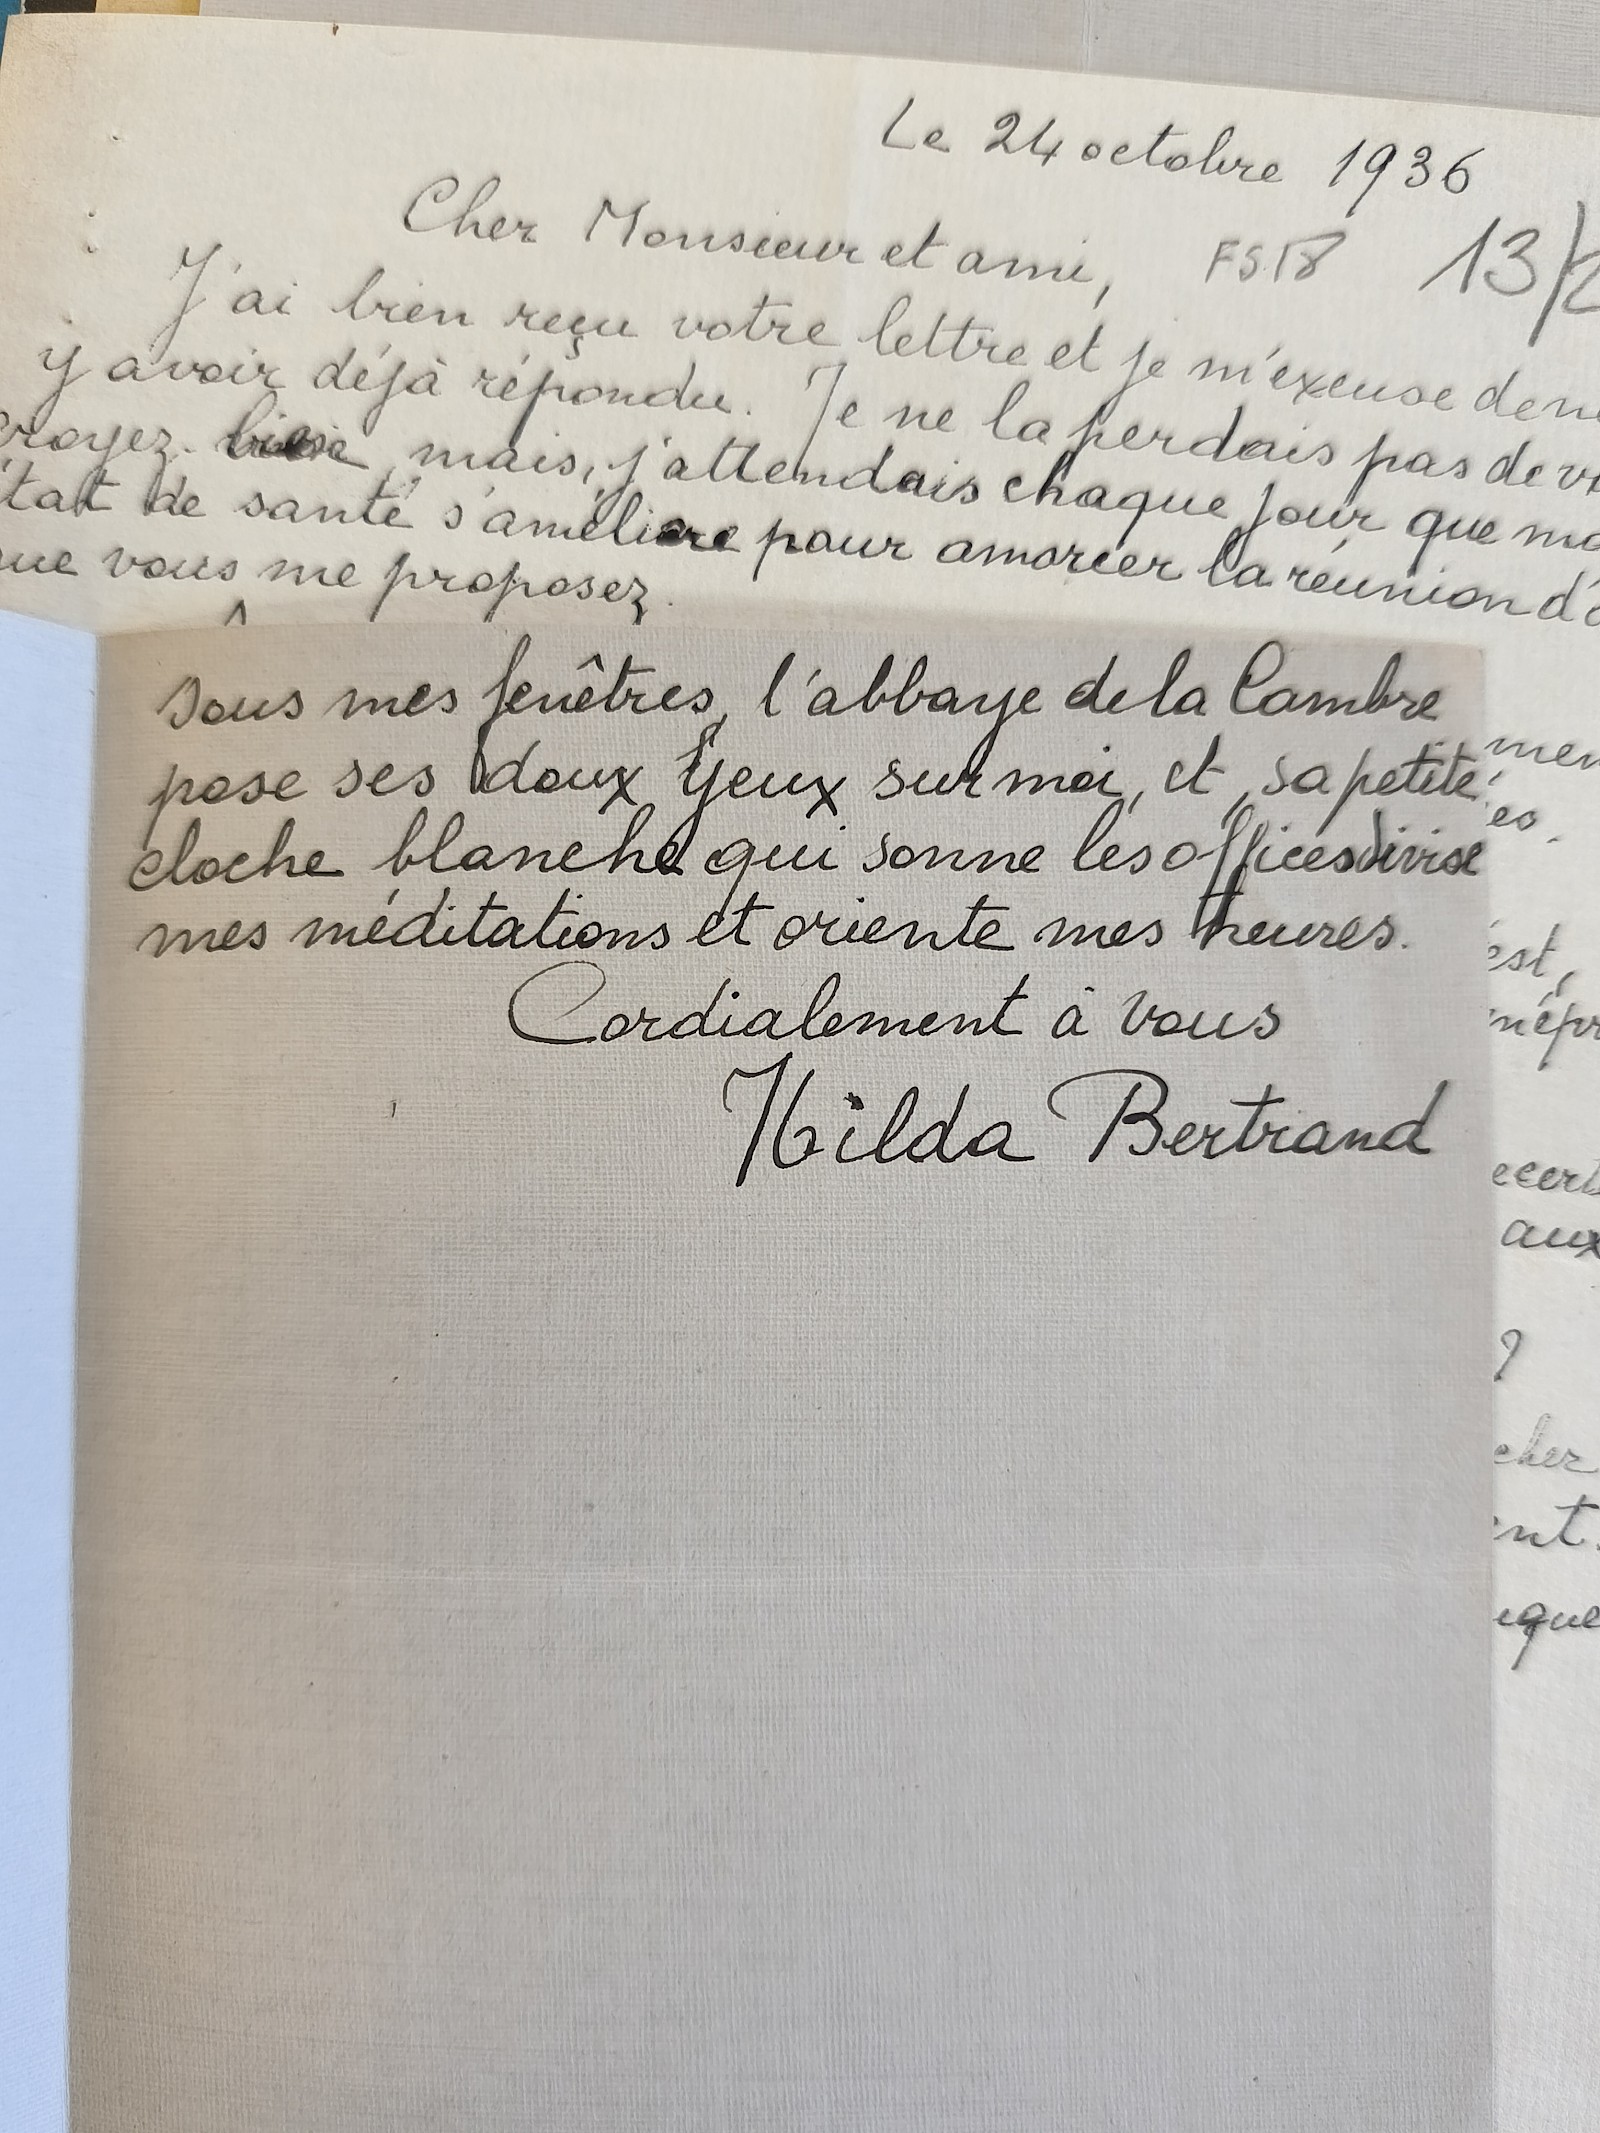 Le 24 octobre 1936
Cher Monsieur et ami,
FS 18 13/
J'ai bien reçu votre lettre et je m'excuse de ne
y avoir déjà répondu. Je ne la perdais pas de
croyez-bien, mais, j'attendais chaque jour que mo
état de santé s'améliore pour amorcer la réunion d'
que vous me proposez.
Sous mes fenêtres, l'abbaye de la Cambre
pose ses doux yeux sur moi, et, sa petite
cloche blanche qui sonne les offices divise
mes méditations et oriente mes heures.
Cordialement à vous
Hilda Bertrand
men
es.
est,
mépr
aux
?
cher
ent.
que